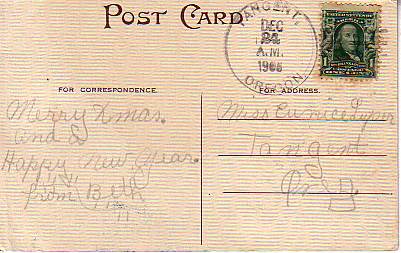 POST CARD
TANGENT,
DEC
24
A.M.
OREGON.
FOR CORRESPONDENCE.
FOR ADDRESS.
Merry Xmas.
and
Happy New Year.
from Beth
Miss Eunice
Tangent